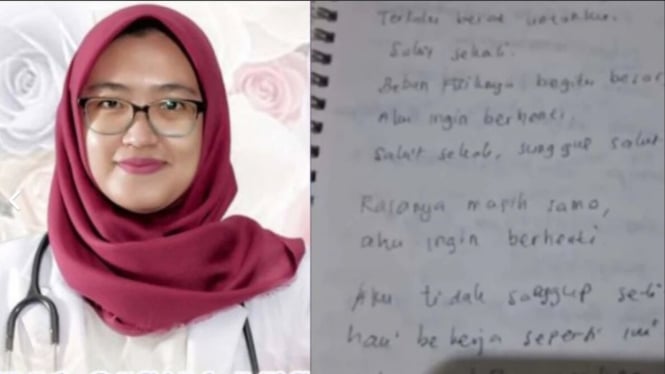 Terlalu berat untukku.
Sakit sekali.
Beban fisiknya begitu berat
Aku ingin berhenti.
Sakit sekali, sungguh sakit
Rasanya masih sama,
aku ingin berhenti
Aku tidak sanggup seti
hari bekerja seperti ini